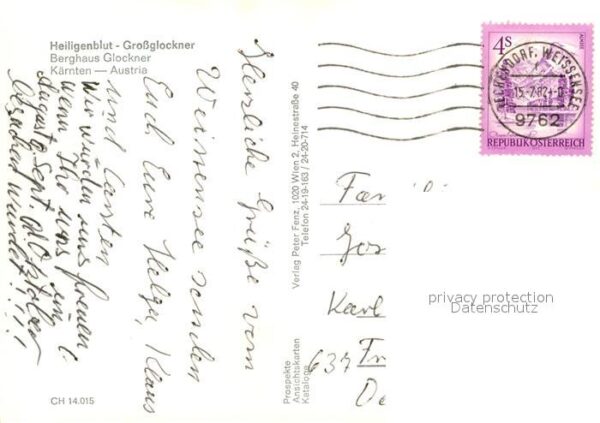 Heiligenblut - Großglockner
Berghaus Glockner
Kärnten — Austria
Herzliche Grüße vom
Weissensee senden
Euch Eure Helga, Klaus
und Carsten
Wir würden uns freuen
wenn Ihr uns im
August, Sept. od. Oktober
CH 14.015
Verlag Peter Fenz, 1020 Wien 2, Heinestraße 40
Telefon 24-19-163 / 24-20-714
Prospekte
Ansichtskarten
Kataloge
4S
REPUBLIK ÖSTERREICH
TECHENDORF, WEISSENSEE
15.-7.82
9762
Karl
637
privacy protection
Datenschutz